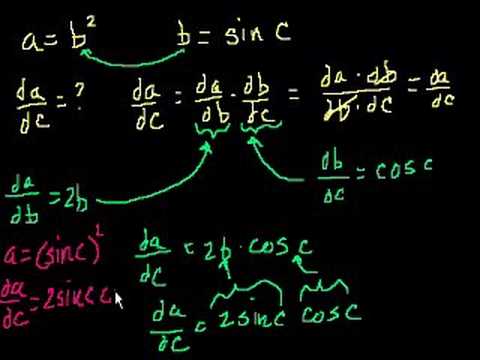 a = b² b = sin c
da/dc = ? da/dc = da/db · db/dc = da · db / db · dc = da/dc
da/db = 2b db/dc = cos c
a = (sin c)² da/dc = 2b · cos c
da/dc = 2 sin c c da/dc = 2 sin c cos c